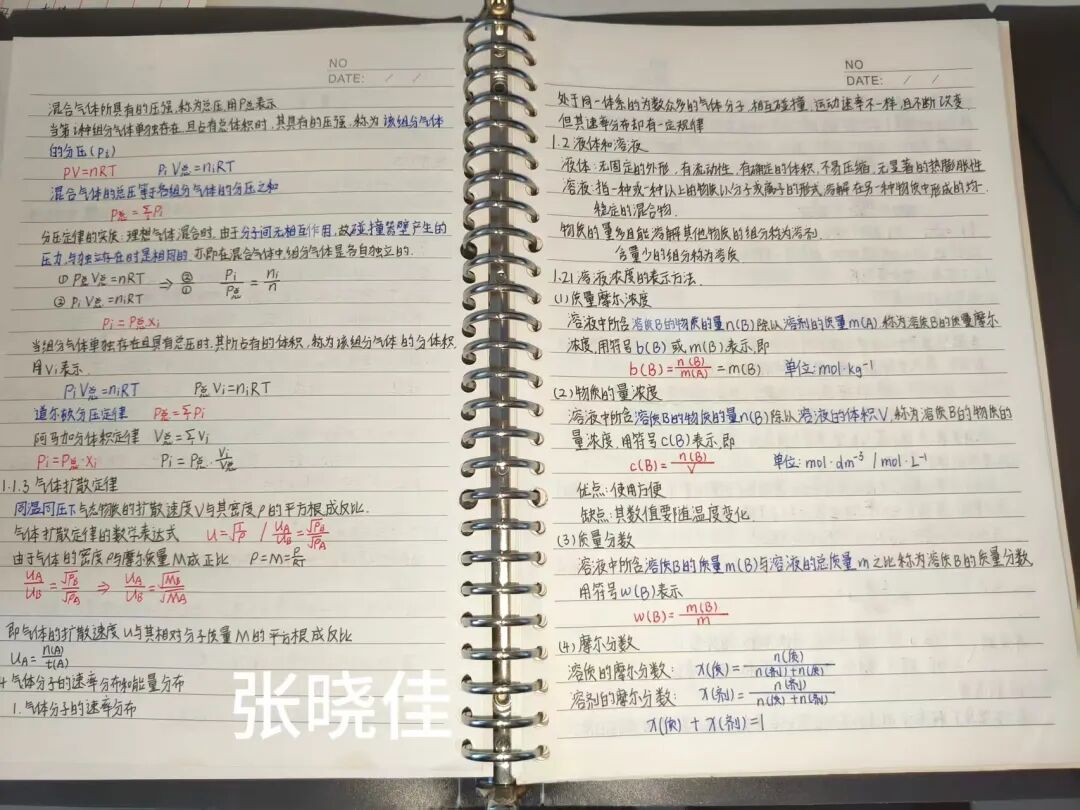 NO
DATE: / /
混合气体所具有的压强,称为总压用P总表示
当第i种组分气体单独存在,且占有总体积时,其具有的压强,称为该组分气体
的分压(Pi)
PV=nRT PiV总=niRT
混合气体的总压等于各组分气体的分压之和
P总=∑Pi
分压定律的实质:理想气体混合时,由于分子间无相互作用,故碰撞器壁产生的
压力,与独立存在时是相同的,亦即在混合气体中,组分气体是各自独立的.
①P总V总=nRT ⇒ ②/① Pi/P总=ni/n
②PiV总=niRT
Pi=P总xi
当组分气体单独存在且具有总压时,其所占有的体积,称为该组分气体的分体积,
用Vi表示.
PiV总=niRT P总Vi=niRT
道尔顿分压定律 P总=∑Pi
阿马加分体积定律 V总=∑Vi
Pi=P总·xi Pi=P总·Vi/V总
1.1.3 气体扩散定律
同温同压下气态物质的扩散速度V与其密度ρ的平方根成反比.
气体扩散定律的数学表达式 u=√1/ρ / uA/uB=√ρB/√ρA
由于气体的密度ρ与摩尔质量M成正比
uA/uB=√ρB/√ρA ⇒ uA/uB=√MB/√MA
即气体的扩散速度u与其相对分子质量M的平方根成反比
uA=n(A)/t(A)
4 气体分子的速率分布和能量分布
1.气体分子的速率分布
张晓佳
NO
DATE: / /
处于同一体系的为数众多的气体分子,相互碰撞,运动速率不一样,且不断改变,
但其速率分布却有一定规律
1.2 液体和溶液
液体:无固定的外形,有流动性,有确定的体积,不易压缩,无显著的热膨胀性
溶液:指一种或一种以上的物质以分子或离子的形式溶解在另一种物质中形成的均一
稳定的混合物.
物质的量多且能溶解其他物质的组分称为溶剂.
含量少的组分称为溶质
1.21 溶液浓度的表示方法.
(1)质量摩尔浓度
溶液中所含溶质B的物质的量n(B)除以溶剂的质量m(A),称为溶质B的质量摩尔
浓度,用符号b(B)或m(B)表示,即
b(B)=n(B)/m(A)=m(B) 单位:mol·kg⁻¹
(2)物质的量浓度
溶液中所含溶质B的物质的量n(B)除以溶液的体积V,称为溶质B的物质的
量浓度,用符号c(B)表示,即
c(B)=n(B)/V 单位:mol·dm⁻³ / mol·L⁻¹
优点:使用方便
缺点:其数值要随温度变化.
(3)质量分数
溶液中所含溶质B的质量m(B)与溶液的总质量m之比称为溶质B的质量分数
用符号w(B)表示
w(B)=m(B)/m
(4)摩尔分数
溶质的摩尔分数: x(质)=n(质)/n(剂)+n(质)
溶剂的摩尔分数: x(剂)=n(剂)/n(质)+n(剂)
x(质)+x(剂)=1